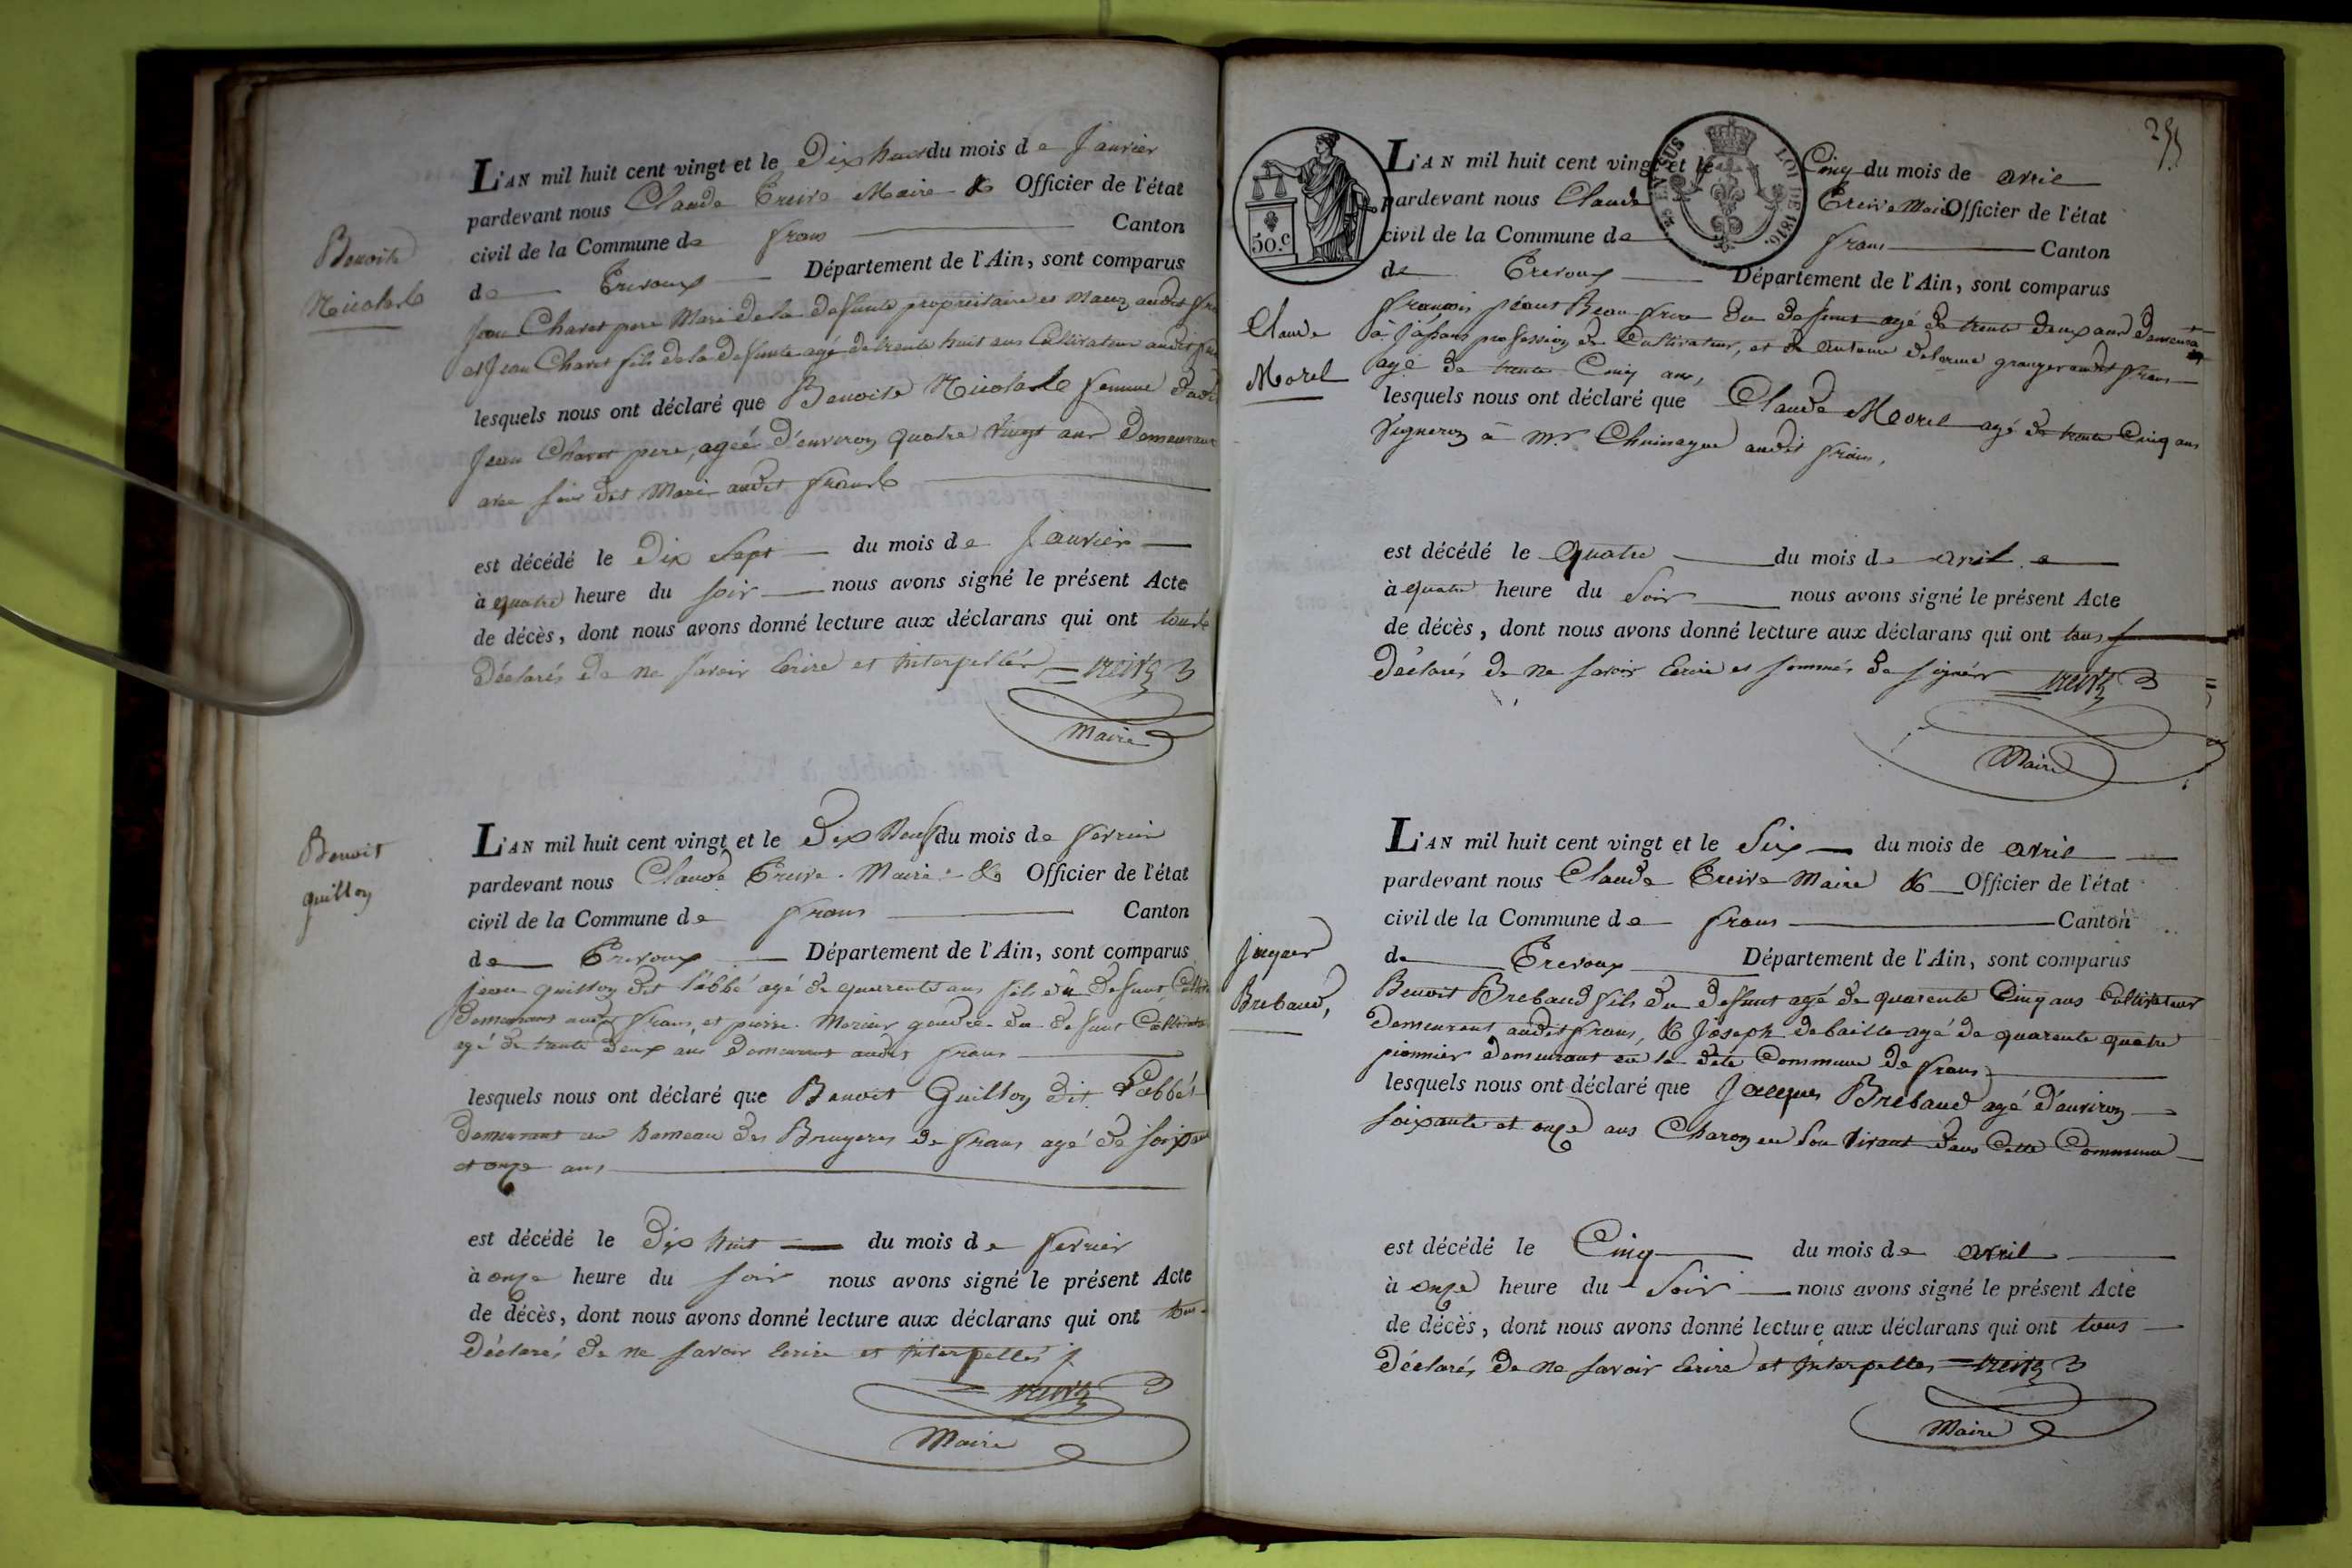 Benoite
Nicolas
L'AN mil huit cent vingt et le Dix huit du mois de Janvier
pardevant nous Claude Treive Maire & Officier de l'état
civil de la Commune de frans Canton
de Trevoux Département de l'Ain, sont comparus
Jean Charet pere Mari de la defunte propriétaire audit
et Jean Charet fils de la defunte agé de trente huit ans Cultivateur audit
lesquels nous ont déclaré que Benoite femme dudit
Jean Charet pere, ageé d'environ quatre vingt ans Demeurant
avec son dit Mari audit frans
est décédé le Dix Sept du mois de Janvier
à quatre heure du soir nous avons signé le présent Acte
de décès, dont nous avons donné lecture aux déclarans qui ont tous
Déclarés de ne savoir Ecrire et Interpellés Treive
Maire
Benoit
guillon
L'AN mil huit cent vingt et le Dix Neuf du mois de fevrier
pardevant nous Claude Treive Maire & Officier de l'état
civil de la Commune de frans Canton
de Trevoux Département de l'Ain, sont comparus
Jean guillon dit l'abbé agé de quarente ans fils du defunt
Demeurant audit frans, et pierre Mercier gendre du defunt Cultivateur
agé de trente deux ans Demeurant audit frans
lesquels nous ont déclaré que Benoit Guillon dit L'abbé
Demeurant au hameau des Bruyeres de frans agé de soixante
et onze ans
est décédé le Dix huit du mois de fevrier
à onze heure du soir nous avons signé le présent Acte
de décès, dont nous avons donné lecture aux déclarans qui ont tous
Déclarés de ne savoir Ecrire et Interpellés
Treive
Maire
255
50.c
EN SUS
LOI DE 1816.
L'AN mil huit cent vingt et le Cinq du mois de avril
pardevant nous Claude Treive Maire Officier de l'état
civil de la Commune de frans Canton
de Trevoux Département de l'Ain, sont comparus
Claude
Morel
francois Beau frere du defunt agé de trente deux ans Demeurant
à Jassans profession de Cultivateur, et de Antoine Delorme granger audit frans
agé de trente Cinq ans,
lesquels nous ont déclaré que Claude Morel agé de trente Cinq ans
Vigneron à Mr. audit frans,
est décédé le quatre du mois de avril
à quatre heure du Soir nous avons signé le présent Acte
de décès, dont nous avons donné lecture aux déclarans qui ont tous
Déclarés de ne savoir Ecrire et sommés de signér Treive
Maire
L'AN mil huit cent vingt et le Six du mois de avril
pardevant nous Claude Treive Maire & Officier de l'état
civil de la Commune de frans Canton
de Trevoux Département de l'Ain, sont comparus
Jaques
Brebaud,
Benoit Brebaud fils du defunt agé de quarente Cinq ans Cultivateur
Demeurant audit frans, & Joseph debaille agé de quarente quatre
pionnier demeurant en la dite Commune de frans
lesquels nous ont déclaré que Jacques Brebaud agé d'environ
soixante et onze ans Charon en Son Vivant dans Cette Commune
est décédé le Cinq du mois de avril
à onze heure du Soir nous avons signé le présent Acte
de décès, dont nous avons donné lecture aux déclarans qui ont tous
Déclarés de ne savoir Ecrire et Interpelles Treive
Maire